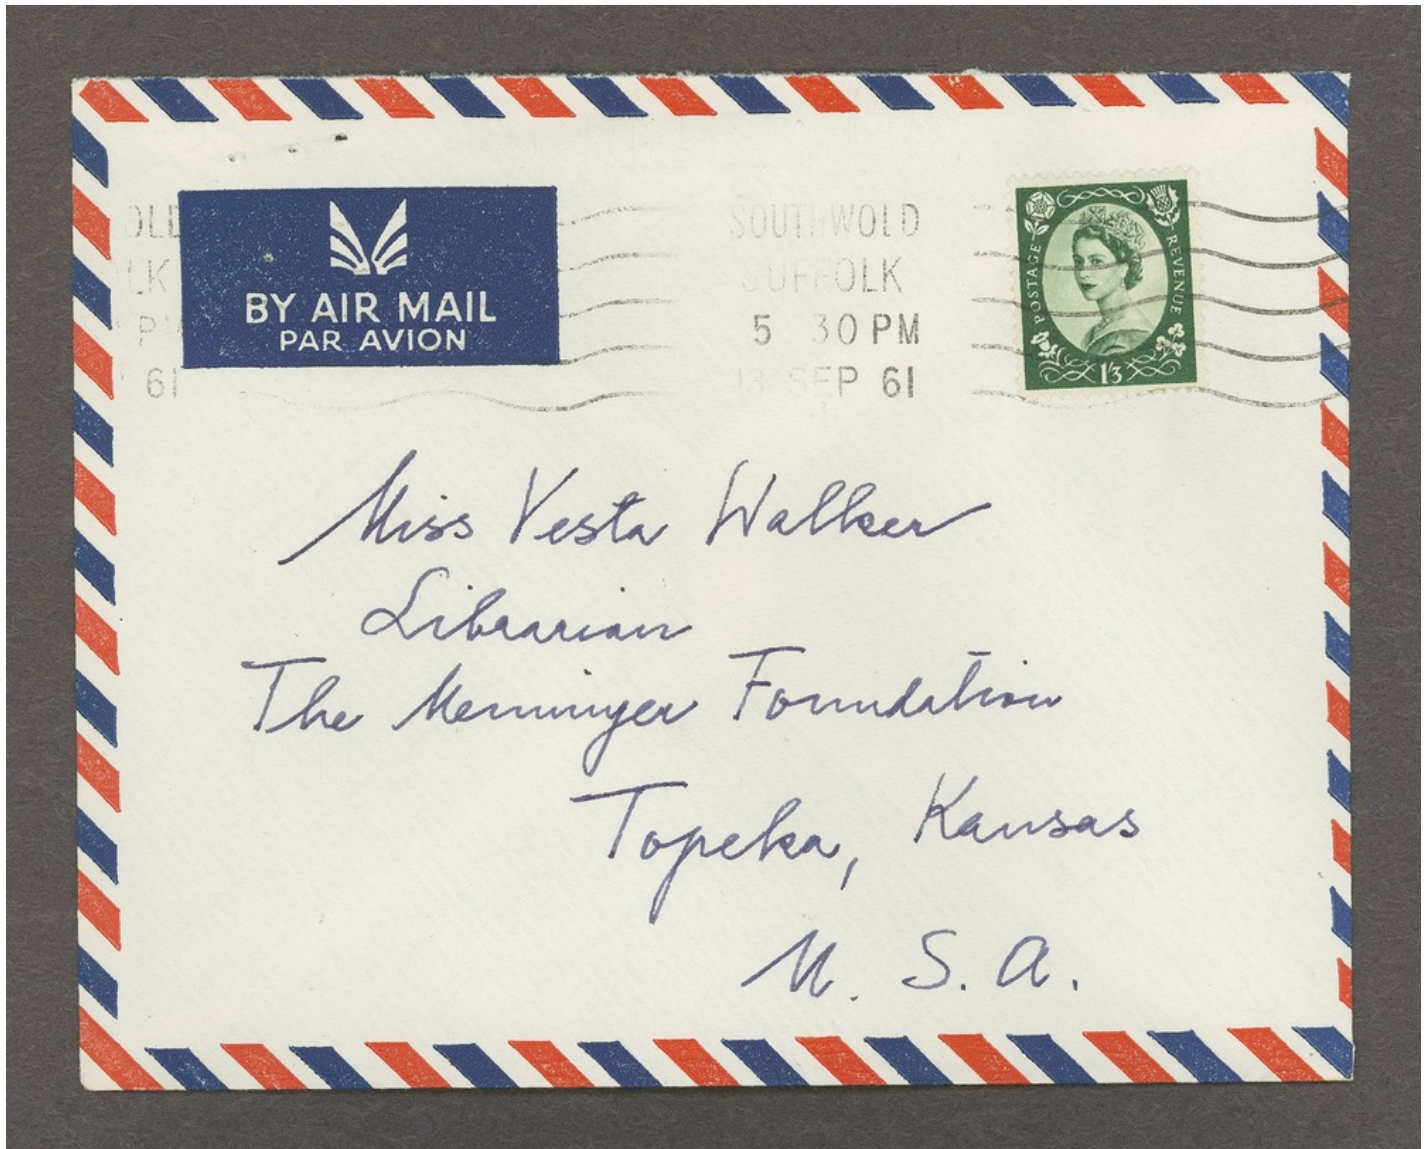 OLD
LK
61
BY AIR MAIL
PAR AVION
SOUTHWOLD
SUFFOLK
5 30 PM
SEP 61
POSTAGE REVENUE
1/3
Miss Vesta Walker
Librarian
The Menninger Foundation
Topeka, Kansas
U. S. A.